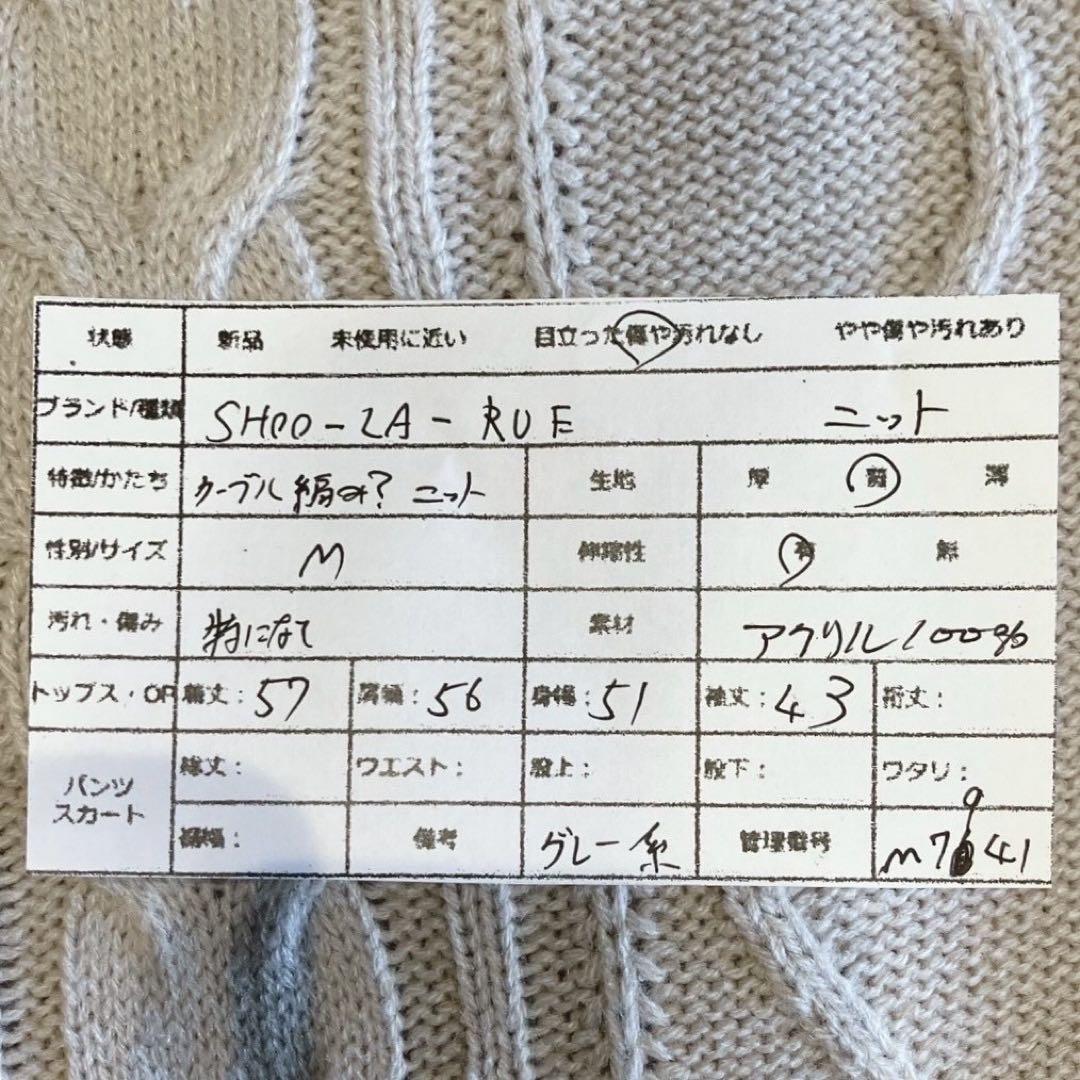 状態 新品 未使用に近い 目立った傷や汚れなし やや傷や汚れあり
ブランド/種類 SHOO-LA-RUE ニット
特徴/かたち ケーブル編み? ニット 生地 厚 普 薄
性別/サイズ M 伸縮性 有 無
汚れ・傷み 特になし 素材 アクリル100%
トップス・OP 着丈: 57 肩幅: 56 身幅: 51 袖丈: 43 裄丈:
パンツ スカート 総丈: ウエスト: 股上: 股下: ワタリ:
裾幅: 備考 グレー系 管理番号 M7941